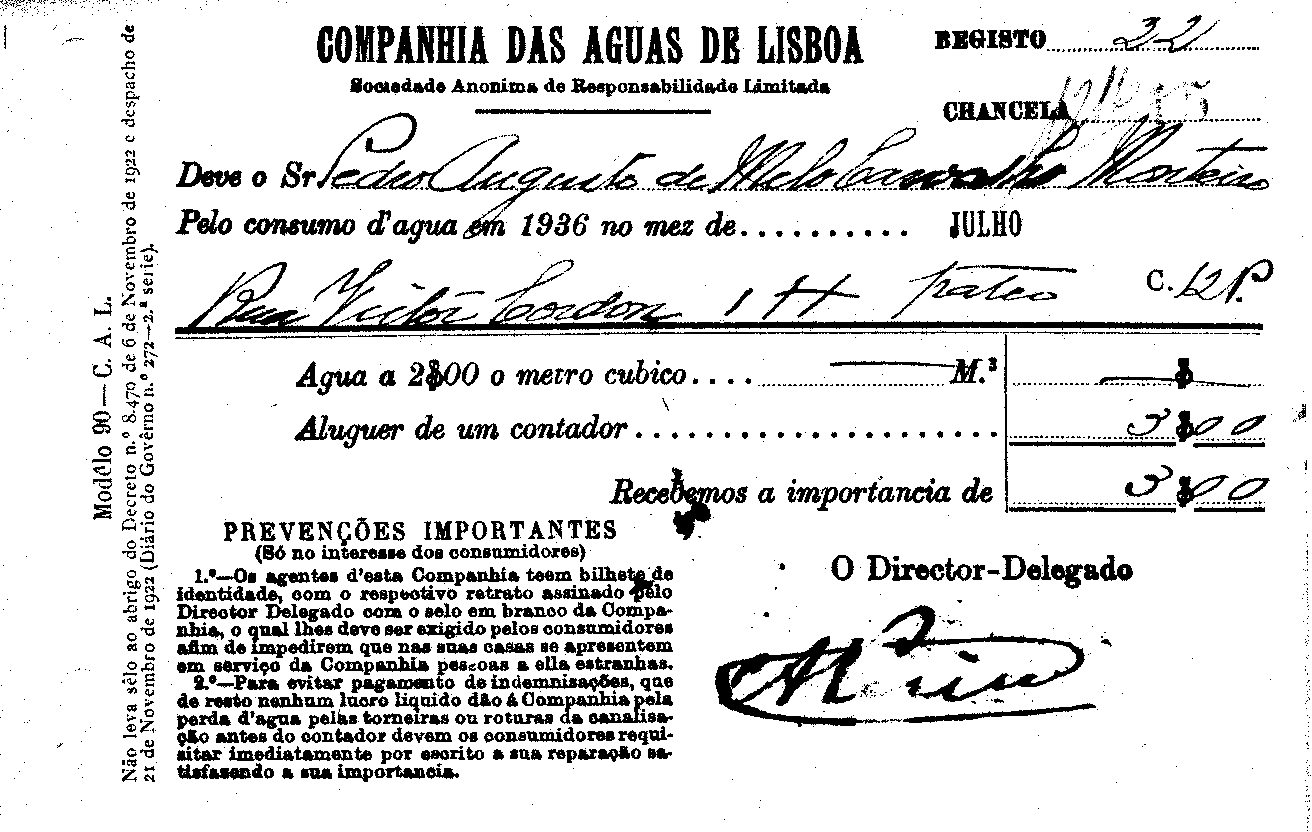 COMPANHIA DAS AGUAS DE LISBOA
Sociedade Anonima de Responsabilidade Limitada
REGISTO 32
CHANCELA
Deve o Sr. Pedro Augusto de Melo Carvalho Monteiro
Pelo consumo d'agua em 1936 no mez de.......... JULHO
Rua Victor Cordon 1 H pateo C. 12 P.
Agua a 2$00 o metro cubico.... M.³ $
Aluguer de um contador..................... 3$00
Recebemos a importancia de 3$00
PREVENÇÕES IMPORTANTES
(Só no interesse dos consumidores)
1.º—Os agentes d'esta Companhia teem bilhete de
identidade, com o respectivo retrato assinado pelo
Director Delegado com o selo em branco da Compa-
nhia, o qual lhes deve ser exigido pelos consumidores
afim de impedirem que nas suas casas se apresentem
em serviço da Companhia pessoas a ella estranhas.
2.º—Para evitar pagamento de indemnisações, que
de resto nenhum lucro liquido dão á Companhia pela
perda d'agua pelas torneiras ou roturas da canalisa-
ção antes do contador devem os consumidores requi-
sitar imediatamente por escrito a sua reparação sa-
tisfasendo a sua importancia.
O Director-Delegado
Modêlo 90—C. A. L.
Não leva sêlo ao abrigo do Decreto n.º 8.470 de 6 de Novembro de 1922 e despacho de
21 de Novembro de 1922 (Diário do Govêrno n.º 272—2.ª serie).